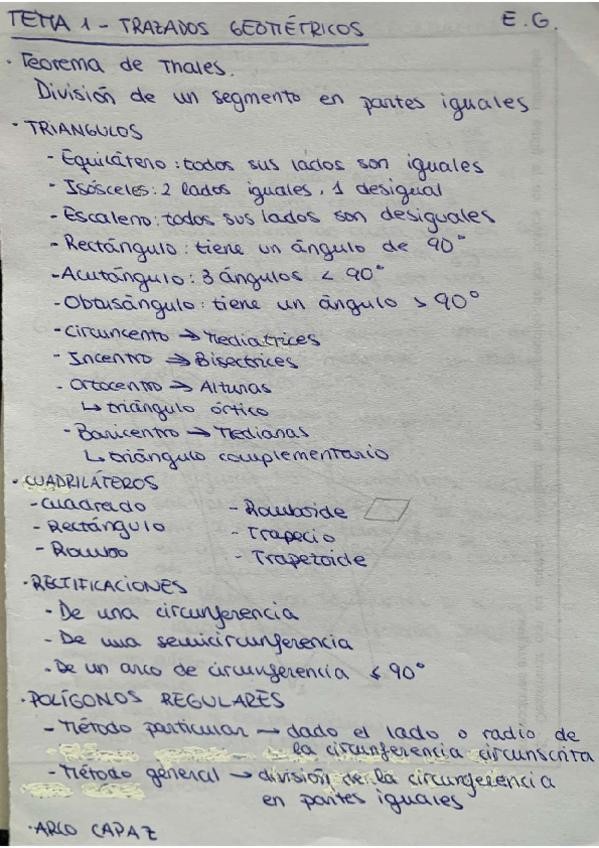 TEMA 1 - TRAZADOS GEOMÉTRICOS E.G.
· Teorema de Thales.
División de un segmento en partes iguales
· TRIANGULOS
- Equilátero: todos sus lados son iguales
- Isósceles: 2 lados iguales, 1 desigual
- Escaleno: todos sus lados son desiguales
- Rectángulo: tiene un ángulo de 90°
- Acutángulo: 3 ángulos < 90°
- Obtusángulo: tiene un ángulo > 90°
- Circuncento → Mediatrices
- Incentro → Bisectrices
- Ortocentro → Alturas
↳ triángulo órtico
- Baricentro → Medianas
↳ triángulo complementario
· CUADRILÁTEROS
- Cuadrado - Romboide
- Rectángulo - Trapecio
- Rombo - Trapezoide
· RECTIFICACIONES
- De una circunferencia
- De una semicircunferencia
- De un arco de circunferencia ≤ 90°
· POLÍGONOS REGULARES
- Método particular → dado el lado o radio de
la circunferencia circunscrita
- Método general → división de la circunferencia
en partes iguales
· ARCO CAPAZ